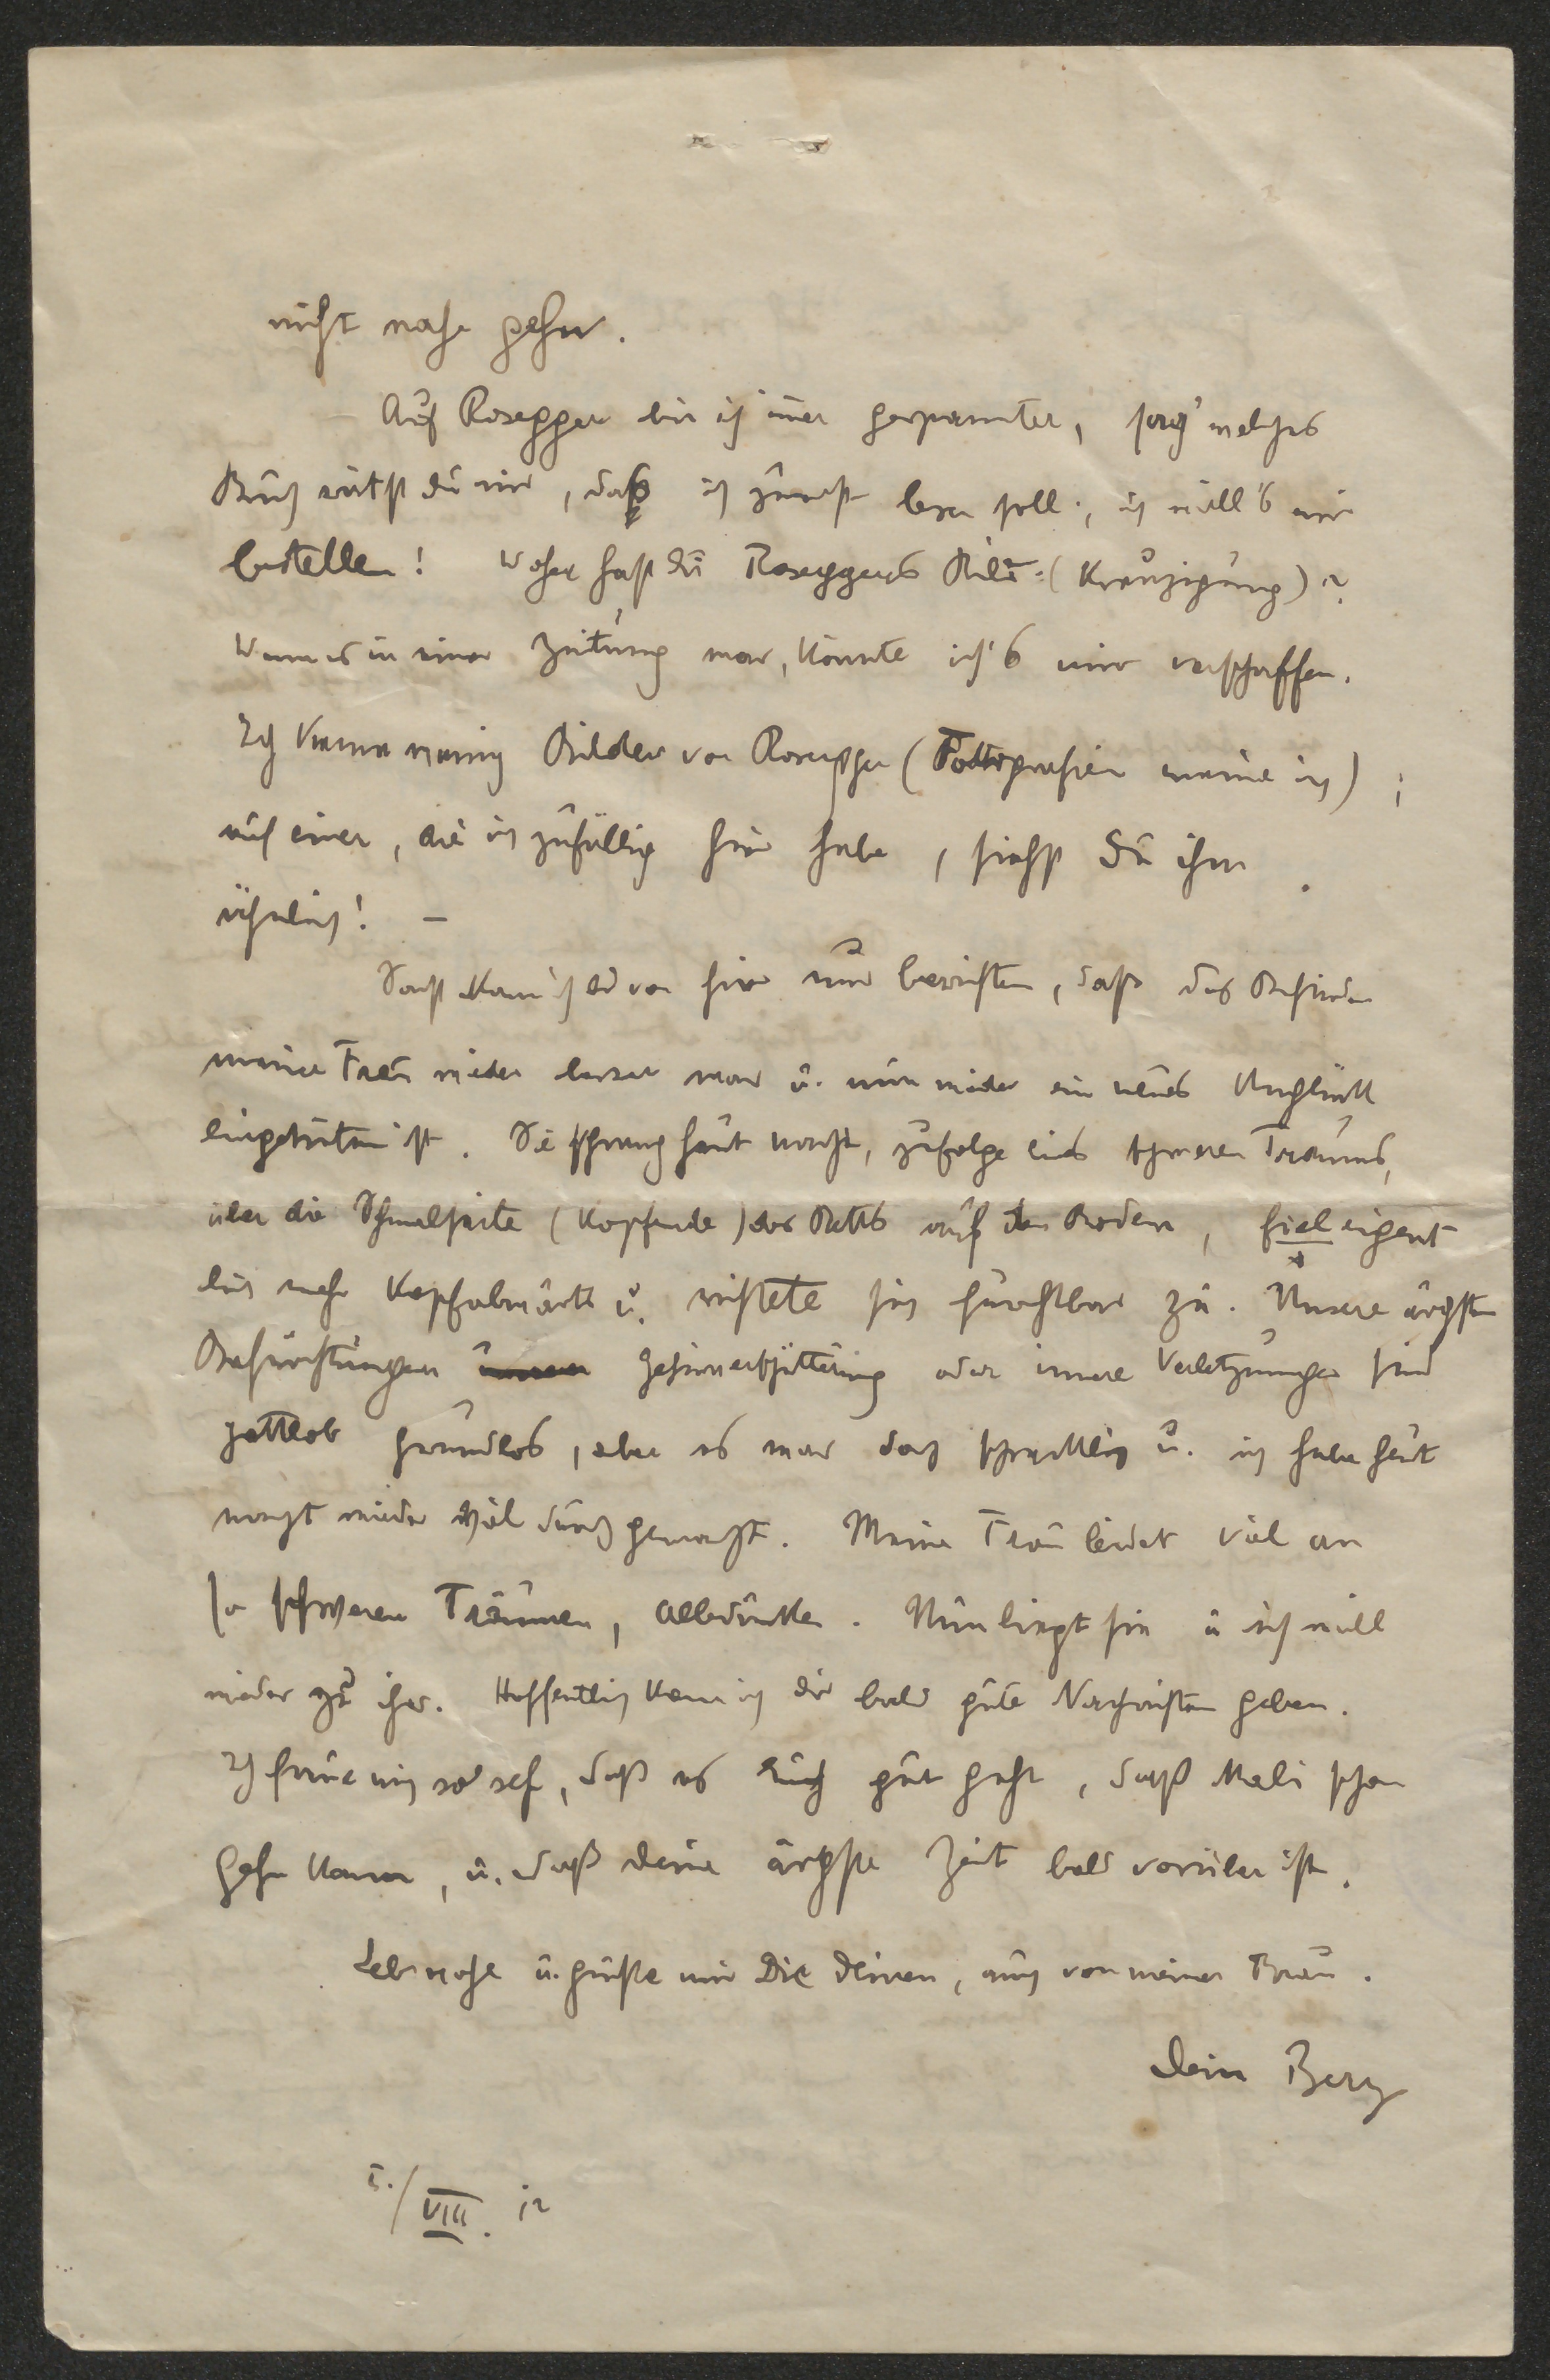 nicht nahe gehn.
Auf Rosegger bin ich immer gespannter, sag' welches
Buch rätst du mir, daß ich zunächst lesen soll; ich will's mir
bestellen! Woher hast du Roseggers Bild: (Kreuzigung)?
Wenn es in einer Zeitung war, könnte ich's mir verschaffen.
Ich kenne wenig Bilder von Rosegger (Fottografien meine ich);
auf einer, die ich zufällig hier habe, siehst du ihm
ähnlich! –
Sonst kann ich dir von hier nur berichten, daß das Befinden
meiner Frau wieder besser war u. nun wieder ein neues Unglück
eingetreten ist. Sie sprang heut nacht, zufolge eines schweren Traumes,
über die Schmalseite (Kopfende) des Betts auf den Boden, fiel eigent
lich mehr kopfabwärts u. richtete sich furchtbar zu. Unsere ärgsten
Befürchtungen Gehirnerschütterung oder innere Verletzungen sind
gottlob grundlos, aber es war doch schrecklich u. ich habe heut
nacht wieder viel durchgemacht. Meine Frau leidet viel an
so schweren Träumen, Alpdrücken. Nun liegt sie u ich will
wieder zu ihr. Hoffentlich kann ich dir bald gute Nachrichten geben.
Ich freue mich so sehr, daß es Euch gut geht, daß Mali schon
gehn kann, u. daß deine ärgste Zeit bald vorüber ist.
Leb wohl u. grüße mir Die Deinen, auch von meiner Frau.
Dein Berg
5./VIII. 12